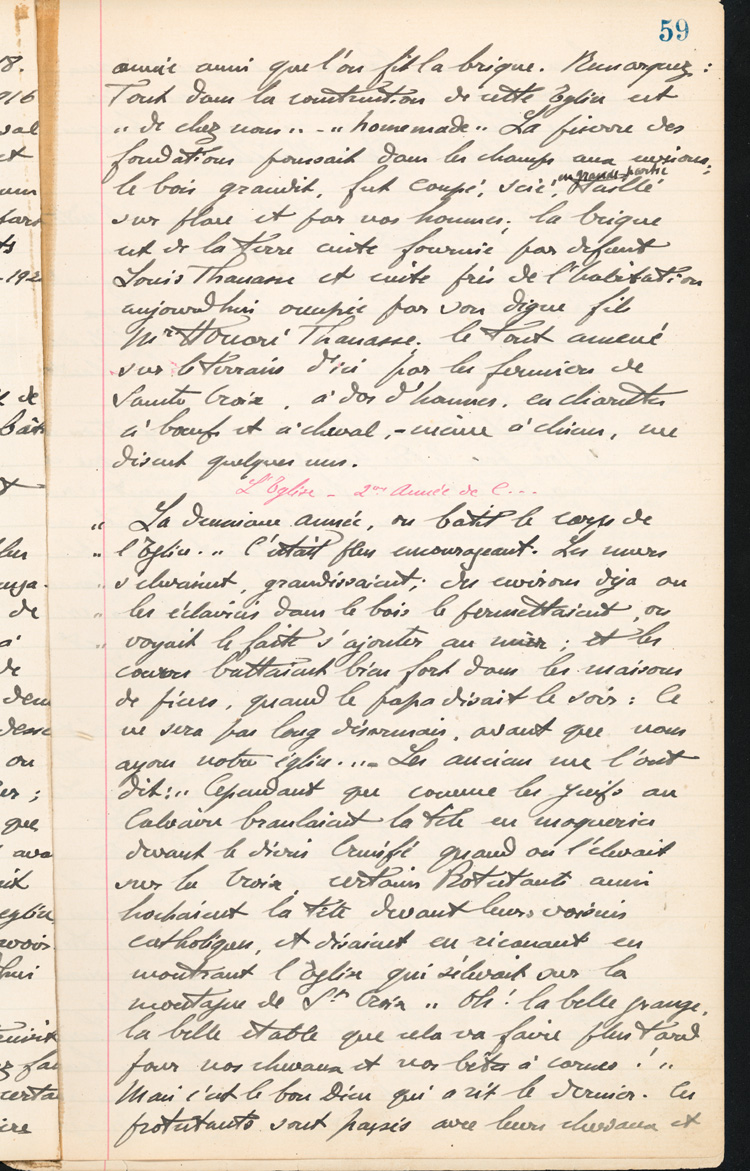 59
année aussi que l'on fit la brique. Remarquez :
Tout dans la construction de cette Église est
" de chez nous " - " homemade " La pierre des
fondations poussait dans les champs aux environs ;
en grande partie
le bois grandit, fut coupé, scié, taillé
sur place et par nos hommes, la brique
est de la terre cuite fournie par défunt
Louis Thanasse et cuite près de l'habitation
aujourd'hui occupée par son digne fils
Mr Honoré Thanasse. le tout amené
sur le terrain d'ici par les fermiers de
Sainte Croix, à dos d'hommes, en charrettes
à boeufs et à cheval, - même à chiens, me
disent quelques uns.
L'Église - 2me Année de C...
" La deuxième année, on bâtit le corps de
" l'Église. " C'était plus encourageant. Les murs
" s'élevaient, grandissaient ; des environs déjà où
" les éclaircis dans le bois le permettaient, on
" voyait le faîte s'ajouter au mur ; et les
coeurs battaient bien fort dans les maisons
de pieux, quand le papa disait le soir : Ce
ne sera pas long désormais, avant que nous
ayons notre église. " - Les anciens me l'ont
dit : " Cependant que comme les Juifs au
Calvaire branlaient la tête en moquerie
devant le divin Crucifié quand on l'élevait
sur la Croix, certains Protestants aussi
hochaient la tête devant leurs voisins
catholiques, et disaient en ricanant en
montrant l'Église qui s'élevait sur la
montagne de Ste Croix " Oh ! la belle grange,
la belle étable que cela va faire plus tard
pour nos chevaux et nos bêtes à cornes ! "
Mais c'est le bon Dieu qui a rit le dernier. Ces
protestants sont passés avec leurs chevaux et